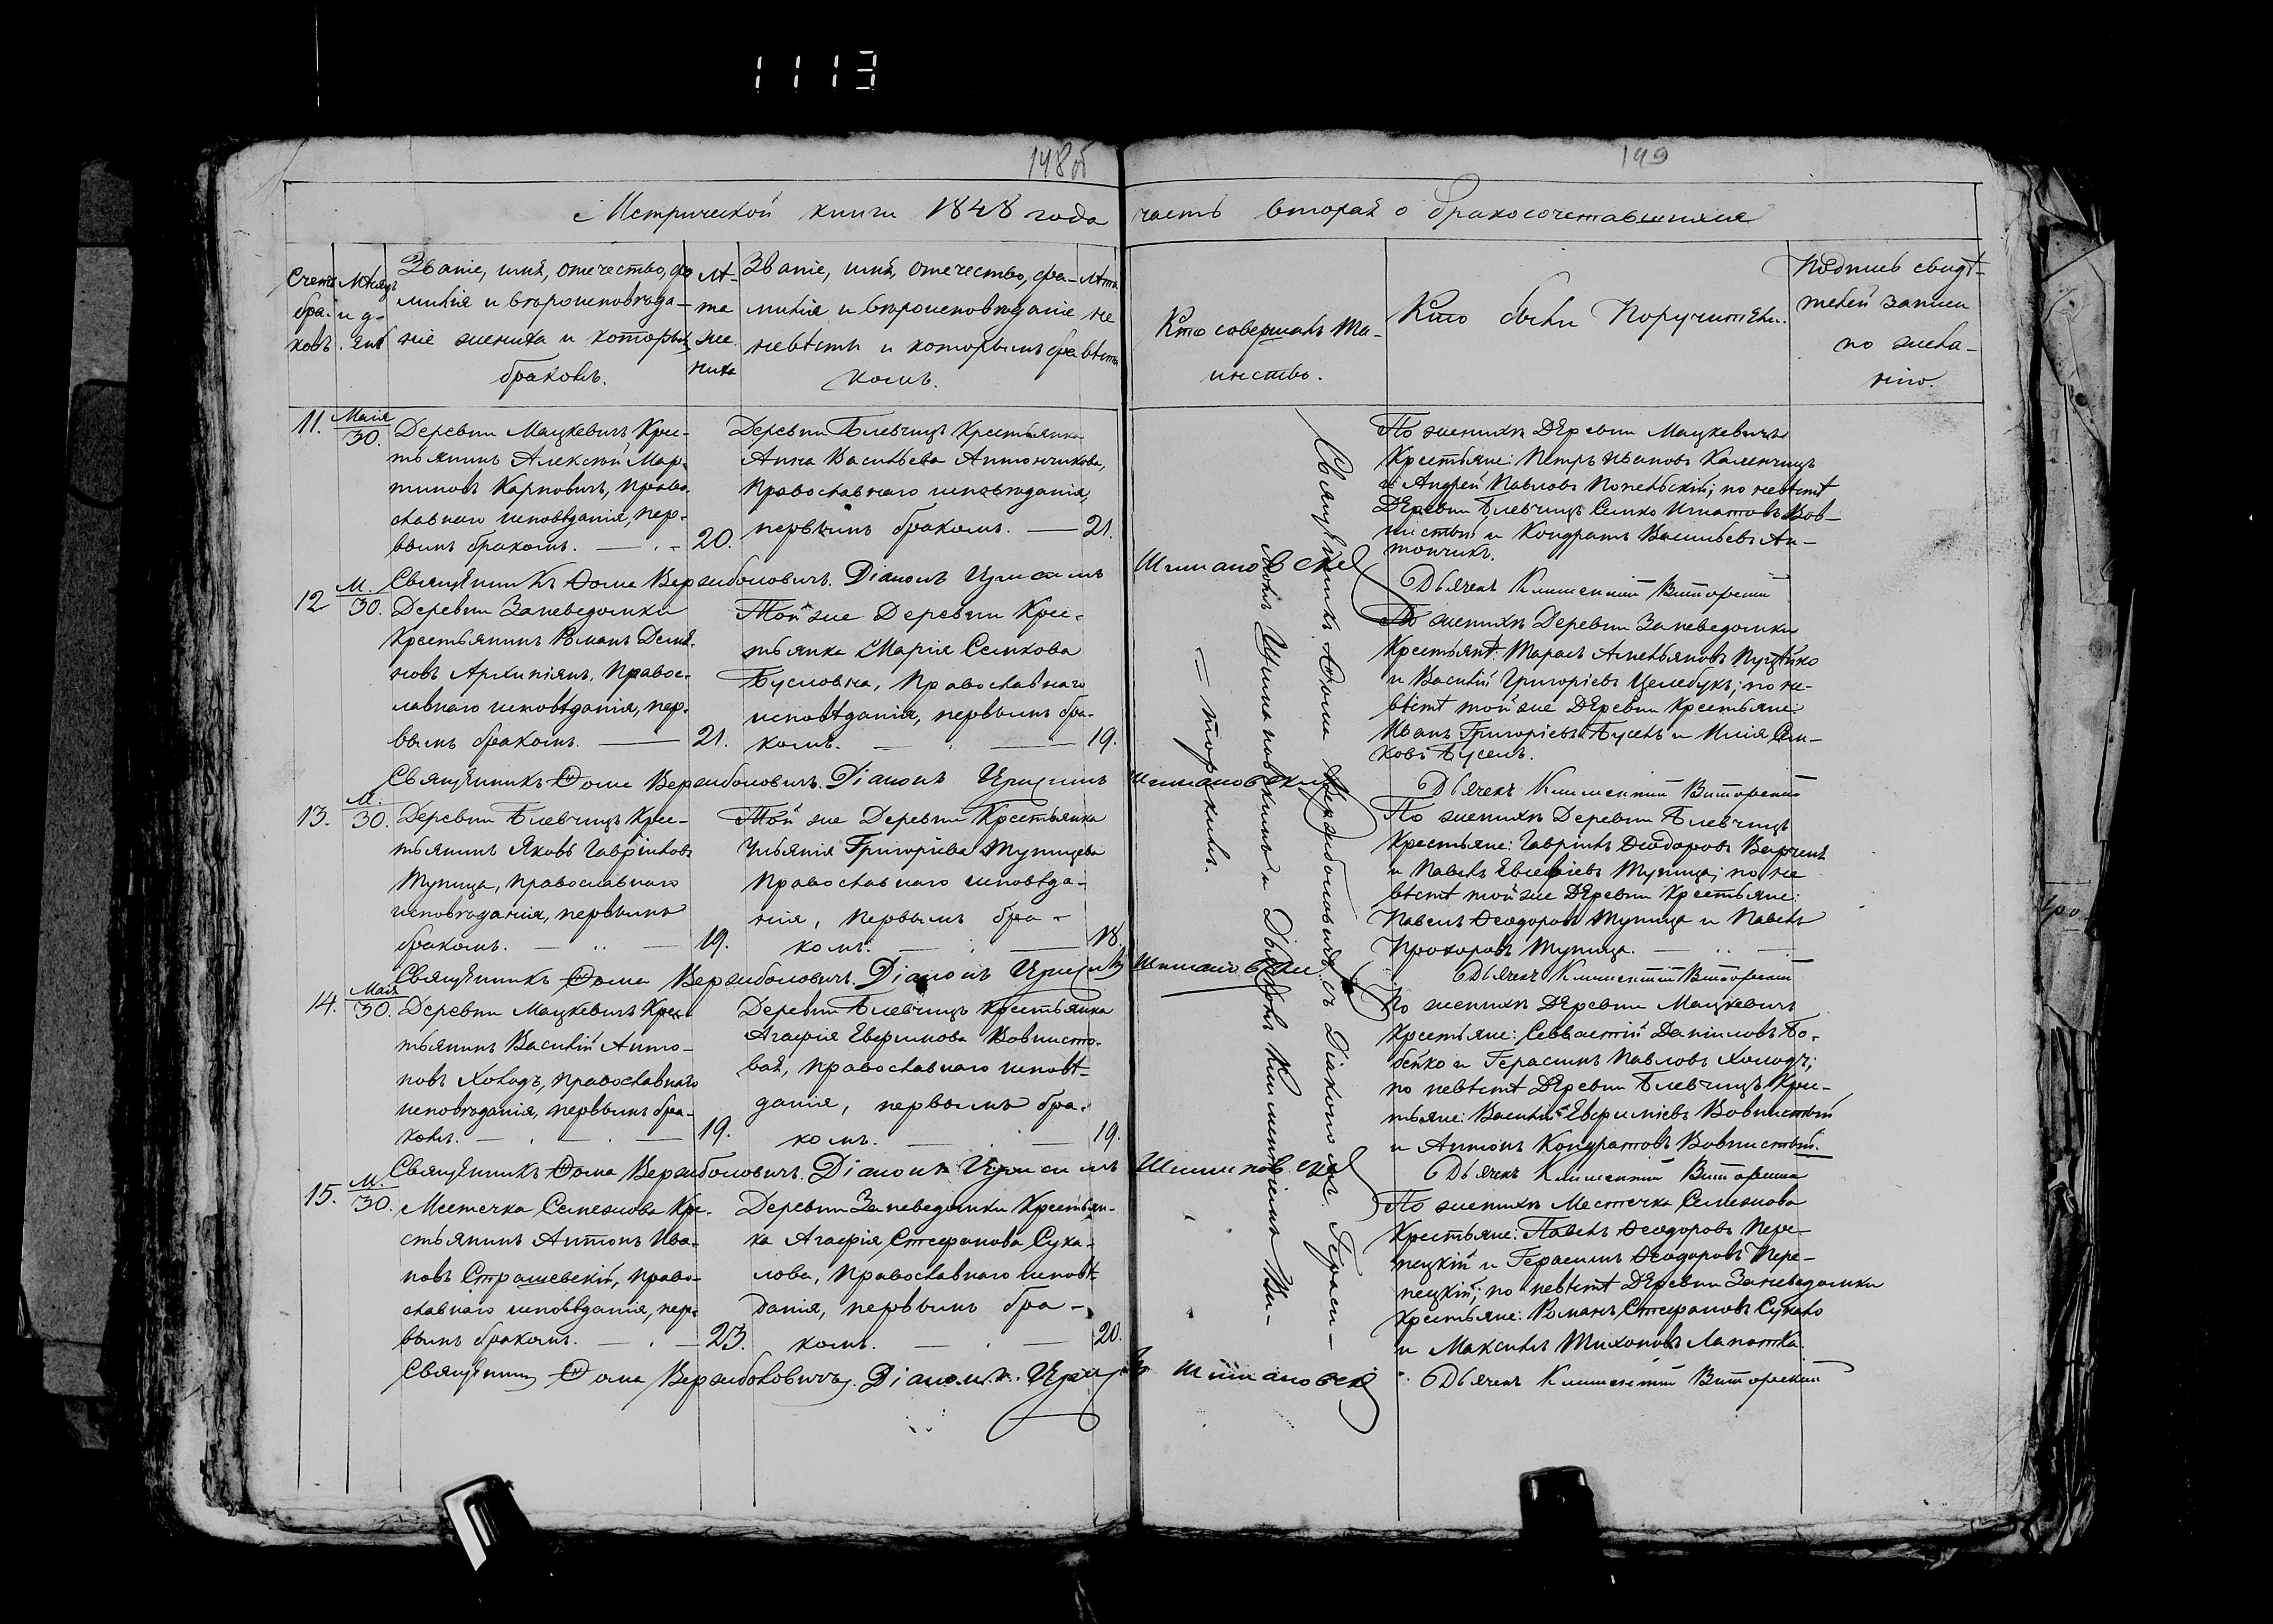 1113
148об
149
Метрической книги 1848 года часть вторая о бракосочетавшихся
Счетъ бра- ковъ.
Мѣсяцъ и д- ень
Званіе, имя, отечество, фа-
милія и вѣроисповѣда-
ніе жениха и которымъ
бракомъ.
Лѣ-
та
же-
ниха
Званіе, имя, отечество, фа-
милія и вѣроисповѣданіе
невѣсты и которымъ бра-
комъ.
Лѣта
не
вѣсты
Кто совершалъ Та-
инство.
Кто были Поручители.
Подпись свидѣ-
телей записи
по жела-
нію.
11.
Маія
30.
Деревни Мацкевичъ Крес-
тьянинъ Алексѣй Мар-
тиновъ Карповичъ, право-
славнаго исповѣданія, пер-
вымъ бракомъ. — 20.
Деревни Блевчицъ Крестьянка
Анна Васильева Антончикова,
Православнаго исповѣданія,
первымъ бракомъ. — 21.
По женихѣ Деревни Мацкевичъ
Крестьяне: Петръ Ивановъ Каленчицъ
и Андрей Павловъ Копельскій; по невѣстѣ
Деревни Блевчицъ Семко Игнатовъ Вов-
нистый и Кондратъ Васильевъ Ан-
тончикъ.
Священникъ Ѳома Вержболовичъ. Діаконъ Герасимъ Шимановскій
Дьячекъ Климентій Виторскій
12
М.
30.
Деревни Заневедомки
Крестьянинъ Романъ Демья-
новъ Архипіянъ, Правос-
лавнаго исповѣданія, пер-
вымъ бракомъ. — 21.
Той же Деревни Крес-
тьянка Марія Семкова
Бусловна, Православнаго
исповѣданія, первымъ бра-
комъ. — 19.
По женихѣ Деревни Заневедомки
Крестьянѣ: Тарасъ Амельяновъ
и Василій Григоріевъ Целебукъ; по не-
вѣстѣ той же Деревни Крестьяне:
Иванъ Григорьевъ Бусель и Илія Сем-
ковъ Бусель.
Священникъ Ѳома Вержболовичъ. Діаконъ Герасимъ Шимановскій
Дьячекъ Климентій Виторскій
13.
М.
30.
Деревни Блевчицъ Крес-
тьянинъ Яковъ Гавріиловъ
Тупица, православнаго
исповѣданія, первымъ
бракомъ. — 19.
Той же Деревни Крестьянка
Ульянія Григоріева Тупицева
Православнаго исповѣда-
нія, первымъ бра-
комъ. — 18.
По женихѣ Деревни Блевчицъ
Крестьяне: Гавріилъ Ѳеодоровъ
и Павелъ Евсефіевъ Тупица; по не
вѣстѣ той же Деревни Крестьяне:
Павелъ Ѳеодоровъ Тупица и Павелъ
Прохоровъ Тупица.
Священникъ Ѳома Вержболовичъ. Діаконъ Герасимъ Шимановскій
Дьячекъ Климентій Виторскій
14.
Маія
30.
Деревни Мацкевичъ Крес-
тьянинъ Василій Анто-
новъ Холодъ, православнаго
исповѣданія, первымъ бра-
комъ. — 19.
Деревни Блевчицъ Крестьянка
Агафія Евфимова Вовнисто-
вая, православнаго исповѣ-
данія, первымъ бра-
комъ. — 19.
По женихѣ Деревни Мацкевичъ
Крестьяне: Севастій Даніиловъ Бо-
бейко и Герасимъ Павловъ Холодъ;
по невѣстѣ Деревни Блевчицъ Крес-
тьяне: Василій Евфиміевъ Вовнистый
и Антонъ Кондратовъ Вовнистый.
Священникъ Ѳома Вержболовичъ. Діаконъ Герасимъ Шимановскій
Дьячекъ Климентій Виторскій
15.
М.
30.
Местечка Семежова Кре-
стьянинъ Антонъ Ива-
новъ Страшевскій, право-
славнаго исповѣданія, пер-
вымъ бракомъ. — 23.
Деревни Заневедомки Крестьян-
ка Агафія Стефанова Сука-
лова, Православнаго исповѣ-
данія, первымъ бра-
комъ. — 20.
По женихѣ Местечка Семежова
Крестьяне: Павелъ Ѳеодоровъ Пере-
пецкій и Герасимъ Ѳеодоровъ Пере-
пецкій; по невѣстѣ Деревни Заневедомки
Крестьяне: Романъ Стефановъ Сукало
и Максимъ Тихоновъ Лапотка.
Священникъ Ѳома Вержболовичъ. Діаконъ Герасимъ Шимановскій
Дьячекъ Климентій Виторскій
Священникъ Ѳома Вержболовичъ съ Діакономъ Гераси-
момъ Шимановскимъ и Дьячкомъ Климентіемъ Ви-
торскимъ.